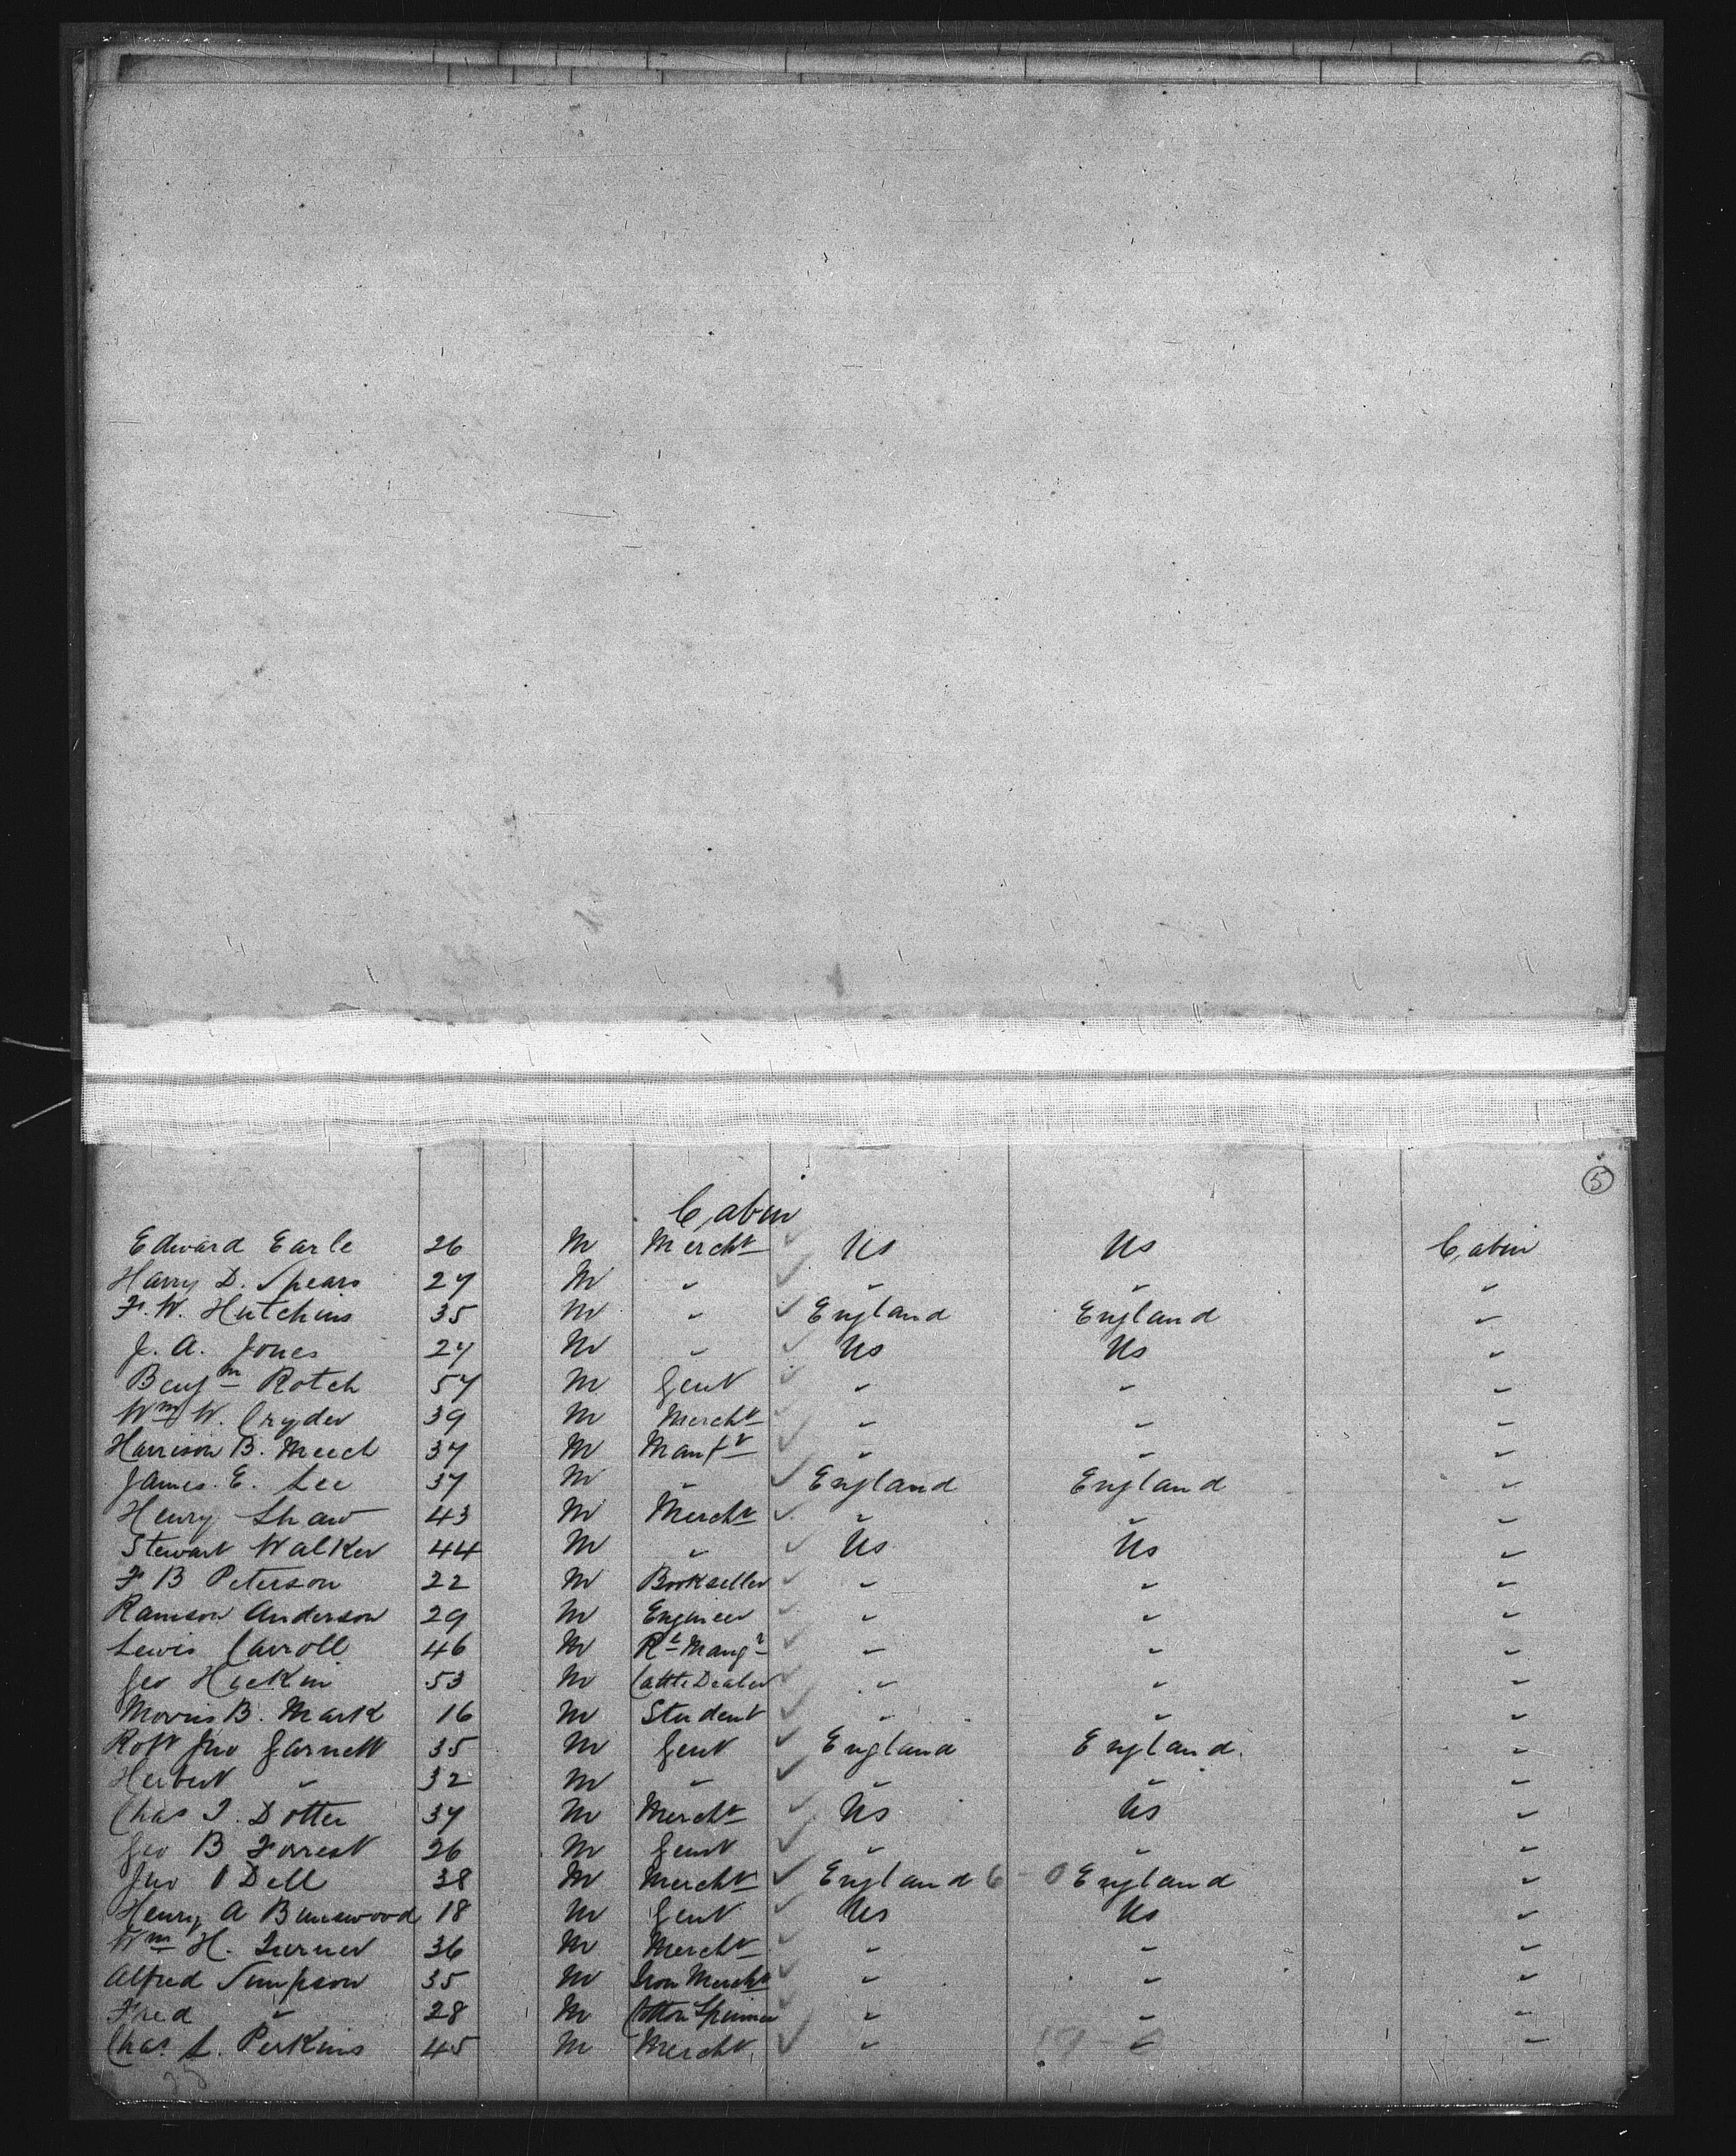 5
Cabin
Edward Earle 26 M Mercht Us Us Cabin
Harry D. Spears 27 M " " " "
F. W. Hutchins 35 M " England England "
J. A. Jones 27 M " Us Us "
Benjm Rotch 57 M Gent " " "
Wm W. Cryder 39 M Mercht " " "
Harrison B. Meech 37 M Manfr " " "
James. E. Lee 37 M " England England "
Henry Shaw 43 M Mercht " " "
Stewart Walker 44 M " Us Us "
F B Peterson 22 M Bookseller " " "
Ramson Anderson 29 M Engineer " " "
Lewis Carroll 46 M " " "
Geo Hackin 53 M Cattle Dealer " " "
Morris B. Mark 16 M Student " " "
Robt Jno Garnett 35 M Gent England England. "
Herbert " 32 M " " " "
Chas T. Dotter 37 M Mercht Us Us "
Geo B Forrest 26 M Gent " " "
Jno O Dell 38 M Mercht England 6 - 0 England "
Henry A 18 M Gent Us Us "
Wm H. Turner 36 M Mercht " " "
Alfred Simpson 35 M Iron Mercht " " "
Fred " 28 M Cotton Spinner " " "
Chas. L. Perkins 45 M Mercht " 19-6 " "
25